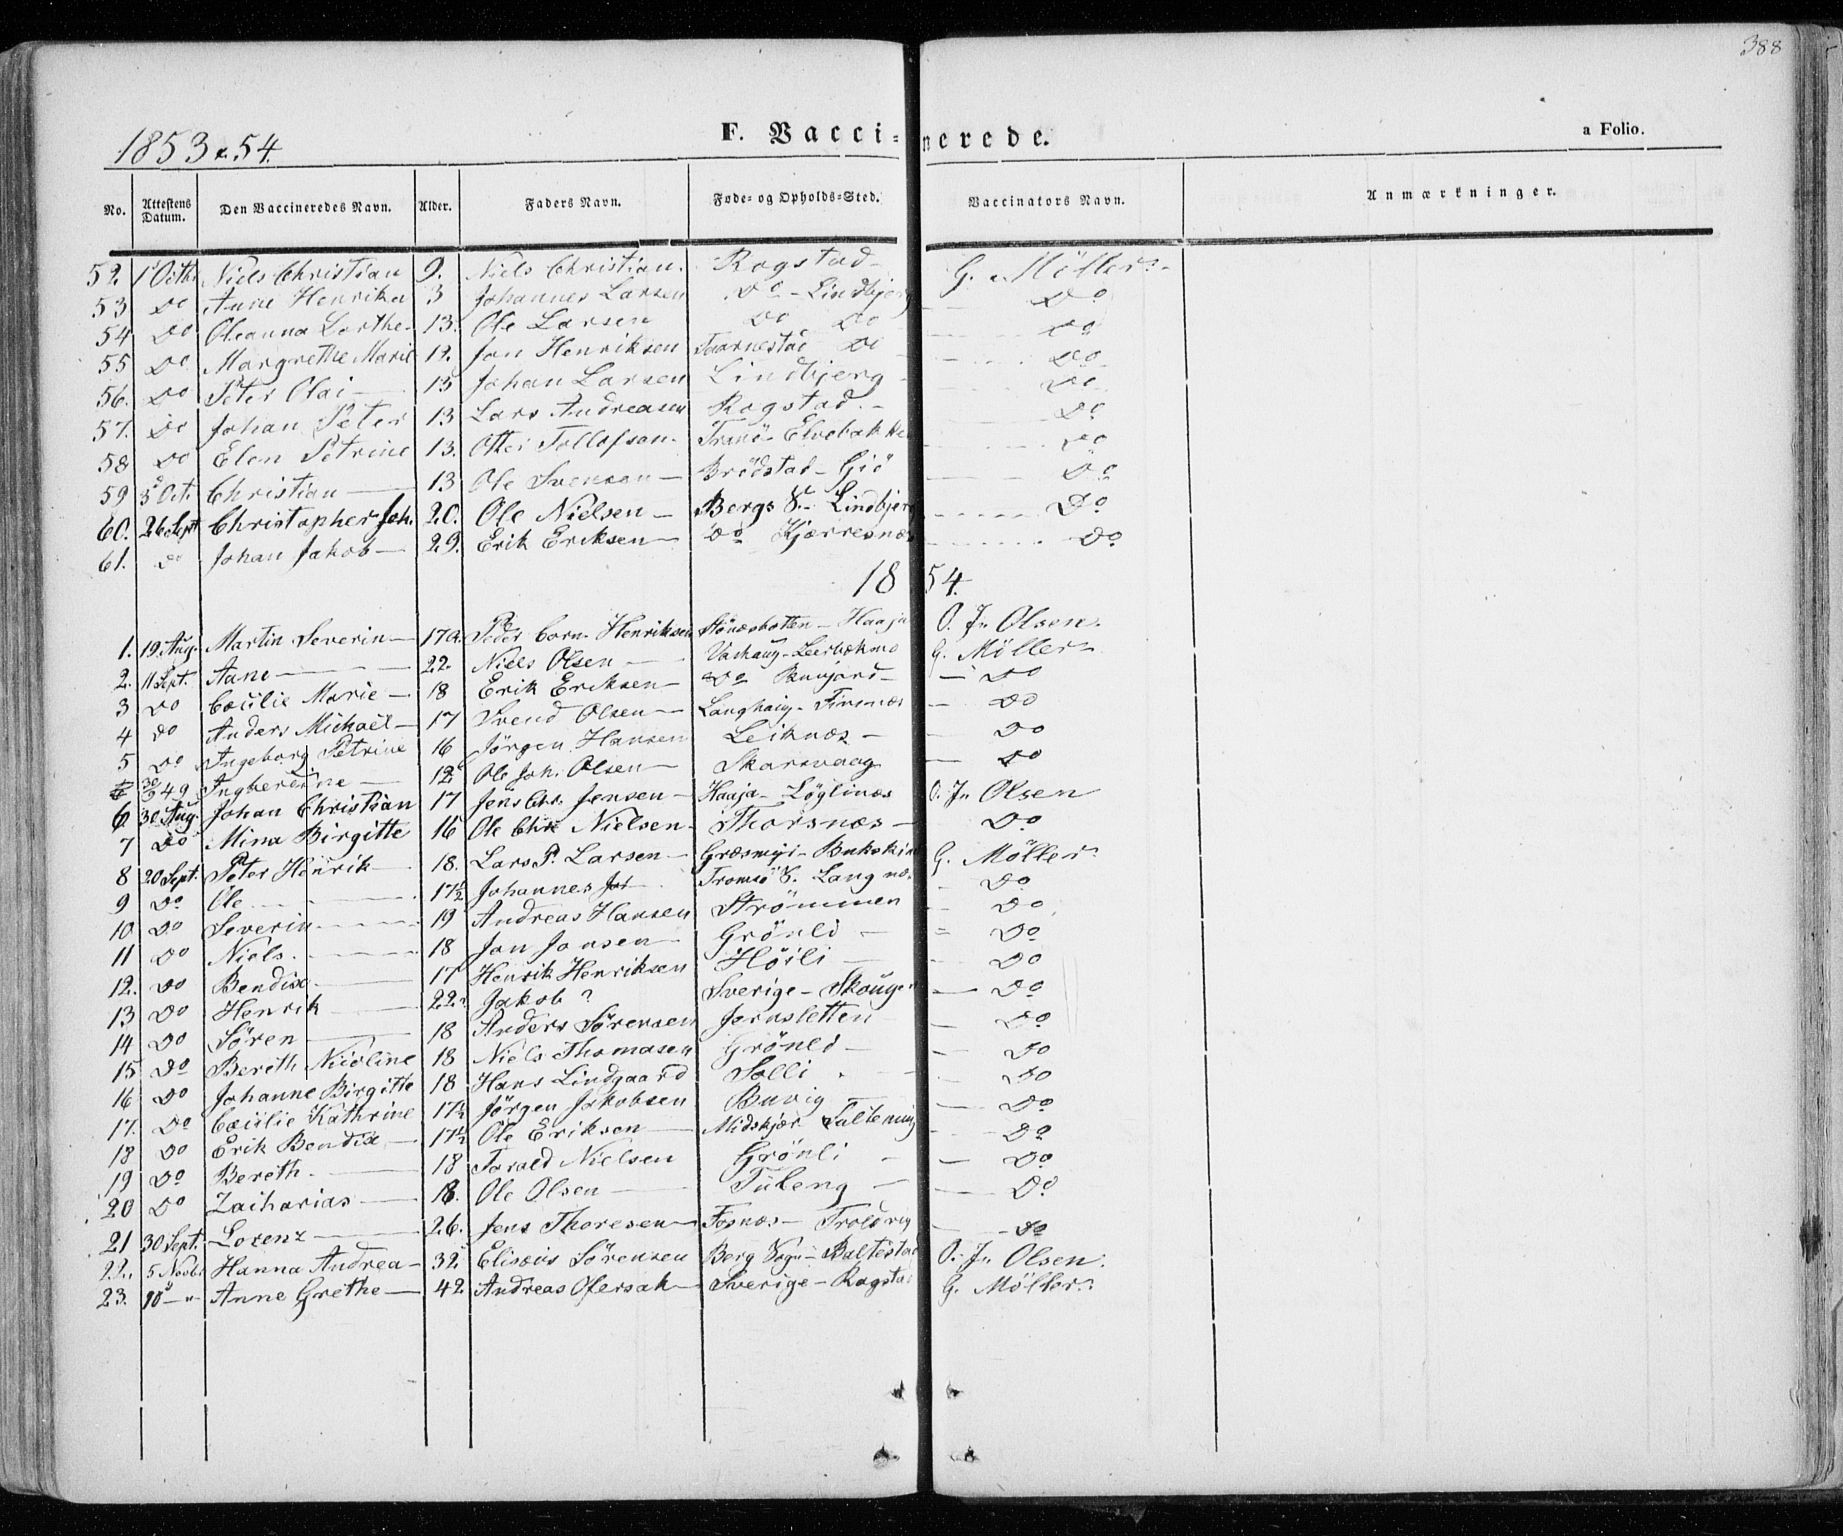 388
1853 & 54.
F. Vaccinerede.
a Folio.
No. Attestens Datum. Den Vaccineredes Navn. Alder. Faders Navn. Føde- og Opholds-Sted. Vaccinators Navn. Anmærkninger.
52. 1 Octb. Niels Christian 9. Niels Christian. Rogstad - G. Möller
53 Do Anne Henrika 3 Johannes Larsen Do - Lindbjerg Do
54 Do Oleanna Dorthe 13. Ole Larsen Do Do Do
55 Do Margrethe Marie 12. Jon Henriksen Taarnestad Do Do
56. Do Peter Olai 13 Johan Larsen Lindbjerg Do
57. Do Johan Peter 13 Lars Andreasen Rogstad. - Do
58 Do Elen Petrine 13. Otter Tollefsen - Tranö - Elvebakken Do
59 3 Oct. Christian 13 Ole Svensen - Brödstad - Giö Do
60. 26 Sept Christopher Joh. 20. Ole Nielsen - Bergs S. - Lindbjerg Do
61. Do Johan Jakob 29. Erik Eriksen - Do Kjærresnæs Do
1854.
1. 19 Aug. Martin Severin - 17 a. Peder Corn. Henriksen Stönæsbotten - Haaja O. Jn Olsen.
2. 11 Sept. Aane 22. Niels Olsen Vashaug - Leerbækmo G. Möller
3 Do Cæcilie Marie - 18 Erik Eriksen - Do Do
4 Do Anders Michael - 17 Svend Olsen - Langhaug - Finnæs - Do
5 Do Ingeborg Petrine 16 Jörgen Hansen Leiknæs - Do
30/9 49 Ingberdine 12 Ole Joh. Olsen - Skarsvaag Do
6 30 Aug. Johan Christian 17 Jens Chr. Jensen - Haaja - Löglinæs O. Jn Olsen
7 Do Mina Birgitte 16 Ole Chr. Nielsen - Thorsnæs - Do
8 20 Sept. Peter Henrik 18. Lars P. Larsen - Græsmyr - Bukskind G. Möller
9 Do Ole 17½ Johannes Joh Tromsö S. Langnæs Do
10 Do Severin 19 Andreas Hansen Strömmen Do
11 Do Niels. 18 Jon Jonsen Grönli - Do
12. Do Bendix 17 Henrik Henriksen Höili Do
13 Do Henrik 22. Jakob ? Sverige - Skougen Do
14 Do Sören 18 Anders Sörensen Jernsletten Do
15 Do Bereth Nicoline 18 Niels Thomasen Grönli - Do
16 Do Johanne Birgitte 18 Hans Lindgaard Solli Do
17. Do Cæcilie Kathrine 17½ Jörgen Jakobsen Buvig Do
18 Do Erik Bendix 17½ Ole Eriksen Midskjær Do
19 Do Bereth 18 Tarald Nielsen Grönli Do
20 Do Zacharias 18. Ole Olsen Tuleng - Do
21 30 Sept. Lorenz 26. Jens Thoresen - Fosnæs - Troldvig Do
22. 5 Novbr Hanna Andrea - 32 Elisæus Sörensen Berg Sogn - Baltestad O. Jn Olsen.
23. 10 - " Anne Grethe 42 Andreas Ofersak - Sverige - Rogstad G. Möller